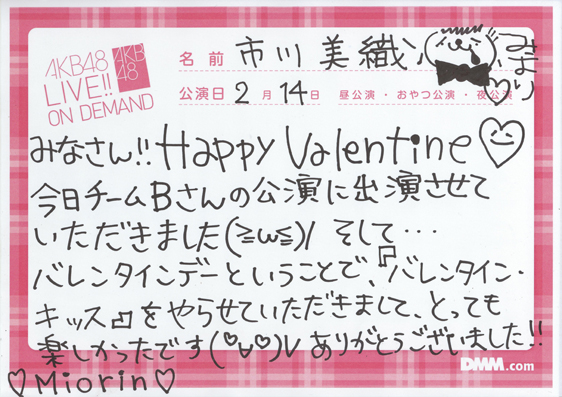 AKB48
LIVE!!
ON DEMAND
AKB
48
名前 市川美織
みおり
公演日 2月14日 昼公演・おやつ公演・夜公演
みなさん!! Happy Valentine
今日チームBさんの公演に出演させて
いただきました(≧ω≦)/ そして・・・
バレンタインデーということで、『バレンタイン・
キッス』をやらせていただきまして、とっても
楽しかったです(♡∪♡)V ありがとうございました!!
♡Miorin♡
DMM.com